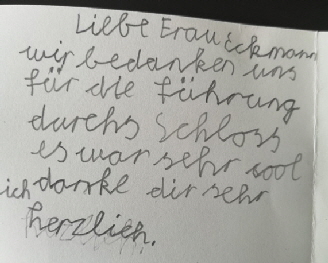 Liebe Frau Eckmann
wir bedanken uns
für die Führung
durchs Schloss
es war sehr cool
ich danke dir sehr
herzlich.